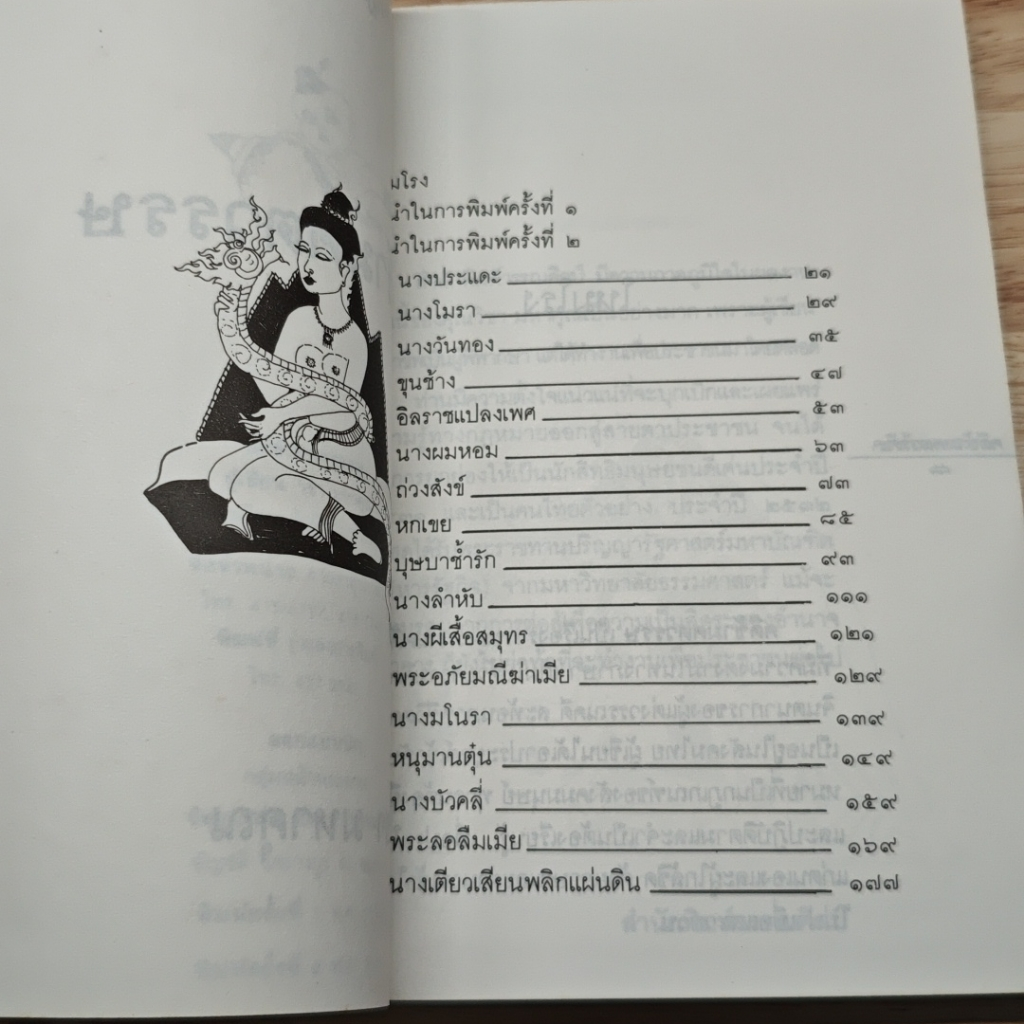 มโรง
นำในการพิมพ์ครั้งที่ ๑
นำในการพิมพ์ครั้งที่ ๒
นางประแดะ ๒๑
นางโมรา ๒๙
นางวันทอง ๓๕
ขุนช้าง ๔๗
อิลราชแปลงเพศ ๕๓
นางผมหอม ๖๓
ถ่วงสังข์ ๗๓
หกเขย ๘๕
บุษบาช้ำรัก ๙๓
นางลำหับ ๑๑๑
นางผีเสื้อสมุทร ๑๒๑
พระอภัยมณีฆ่าเมีย ๑๒๙
นางมโนรา ๑๓๙
หนุมานตุ๋น ๑๔๙
นางบัวคลี่ ๑๕๙
พระลอลืมเมีย ๑๖๙
นางเตียวเสียนพลิกแผ่นดิน ๑๗๗